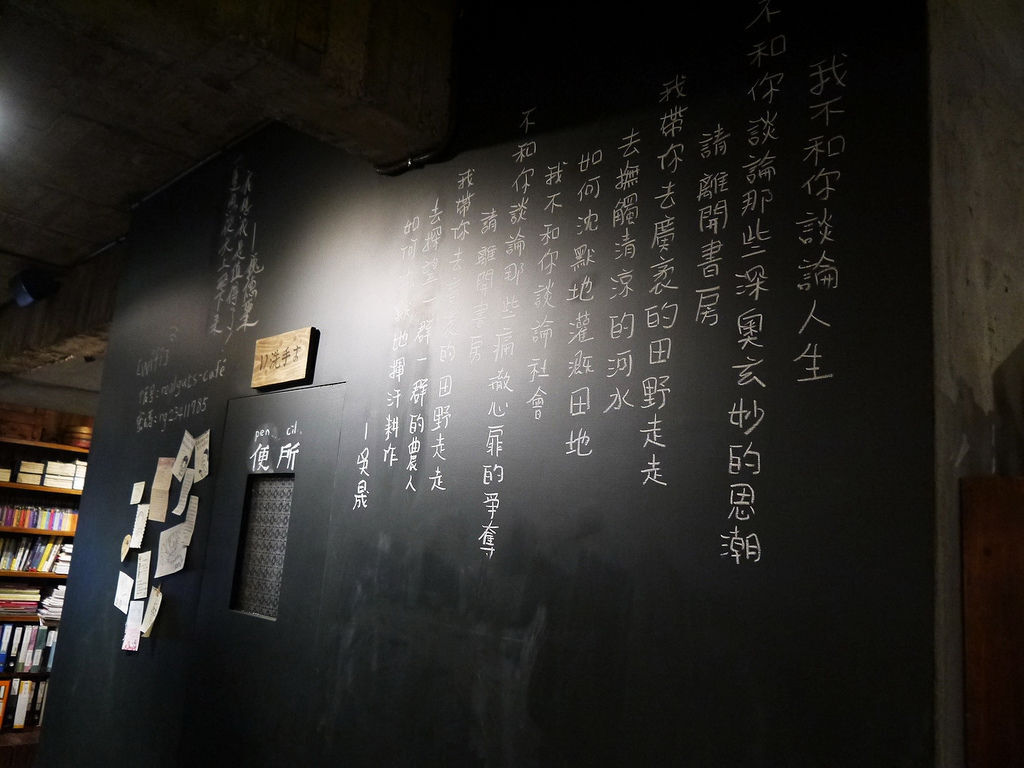 我不和你談論人生
不和你談論那些深奧玄妙的思潮
請離開書房
我帶你去廣袤的田野走走
去撫觸清涼的河水
如何沈默地灌溉田地
我不和你談論社會
不和你談論那些痛徹心扉的爭奪
請離開書房
我帶你去廣袤的田野走走
去探望一群一群的農人
如何沈默地揮汗耕作
—吳晟
洗手
pen cil.
便所
[wifi]
帳號:realguts-café
密碼:rg23411785